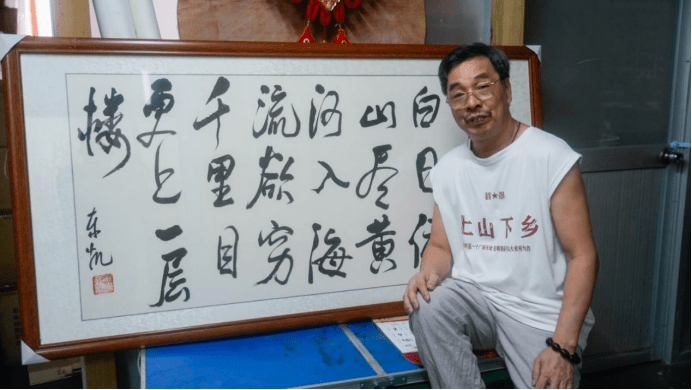 白日依
山尽黄
河入海
流欲穷
千里目
更上一层
楼
东凯
上山下乡